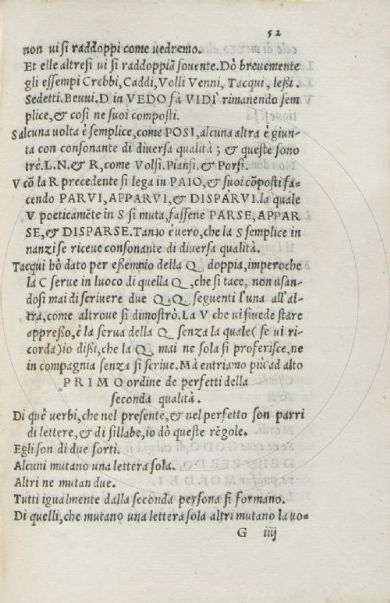 52
non ui si raddoppi come uedremo.
Et elle altresi ui si raddoppiã souente. Dò breuemente
gli essempi Crebbi, Caddi, Volli Venni, Tacqui, leßi.
Sedetti. Beuui. D in VEDO fà VIDI rimanendo sem
plice, & così ne suoi composti.
S alcuna uolta è semplice, come POSI, alcuna altra è giun-
ta con consonante di diuersa qualità; & queste sono
tre. L.N.& R, come Volsi. Piansi. & Porsi.
V cõ la R precedente si lega in PAIO, & suoi cõposti fa-
cendo PARVI, APPARVI, & DISPARVI. la quale
V poeticamẽte in S si muta, fassene PARSE, APPAR
SE, & DISPARSE. Tanto è uero, che la S semplice in
nanzi se riceue consonante di diuersa qualità.
Tacqui hò dato per eßempio della Q doppia, imperoche
la C serue in luoco di quella Q, che si tace, non usan-
dosi mai di scriuere due Q,Q seguenti l'una all'al-
tra, come altroue si dimostrò. La V che ui siuede stare
appreßo, è la serua della Q senza la quale (se ui ri-
corda) io dißi, che la Q mai ne sola si proferisce, ne
in compagnia senza si scriue. Ma entriamo più ad alto
PRIMO ordine de perfetti della
seconda qualità.
Di què uerbi, che nel presente, & nel perfetto son parri
di lettere, & di sillabe, io dò queste règole.
Egli son di due sorti.
Alcuni mutano una lettera sola.
Altri ne mutan due.
Tutti igualmente dalla secõda persona si formano.
Di quelli, che mutano una lettera sola altri mutano la uo-
G iiij